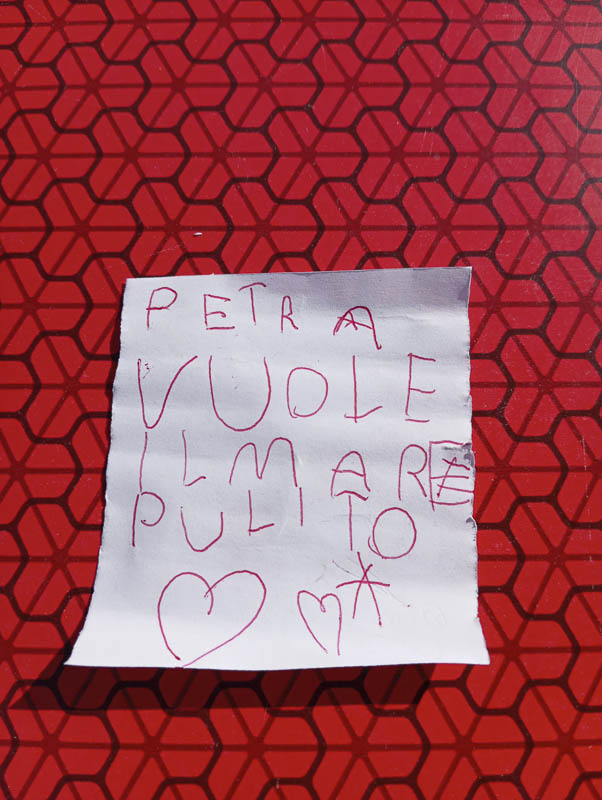 PETRA
VUOLE
IL MARE
PULITO